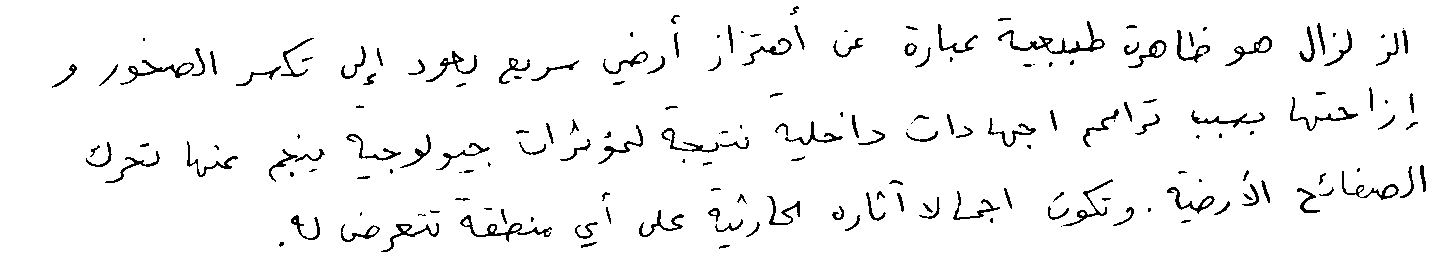 الزلزال هو ظاهرة طبيعية عبارة عن أهتزاز أرضي سريع يعود إلى تكسر الصخور و
إزاحتها بسبب تراكم اجهادات داخلية نتيجة لمؤثرات جيولوجية ينجم عنها تحرك
الصفائح الأرضية. وتكون اجمالا آثاره كارثية على أي منطقة تتعرض له.